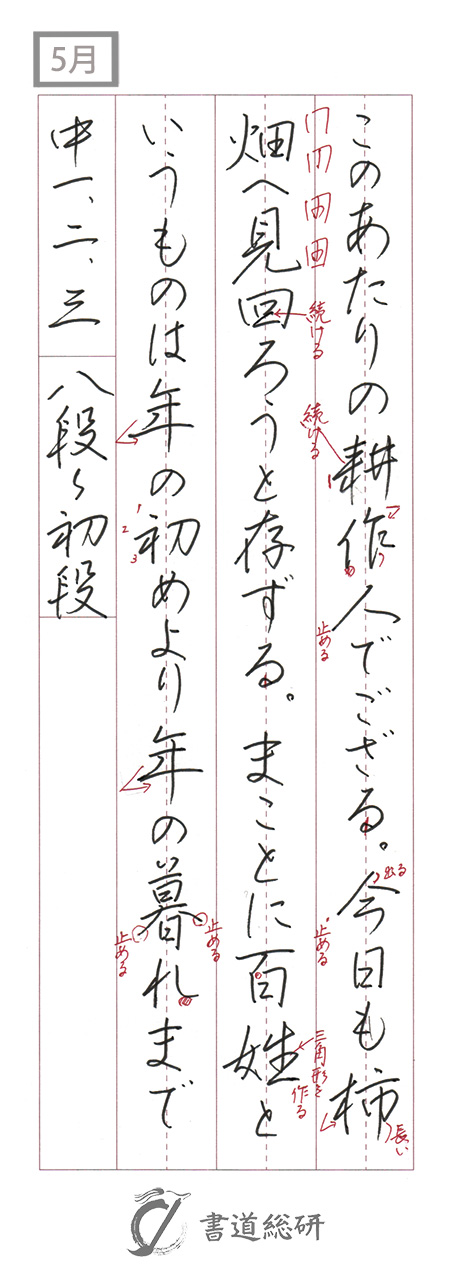 5月
このあたりの耕作人でござる。今日も柿
畑へ見回ろうと存ずる。まことに百姓と
いうものは年の初めより年の暮れまで
中一、二、三 八段〜初段
続ける
続ける
止める
出る
止める
三角形を作る
長い
1
2
3
止める
止める
書道総研